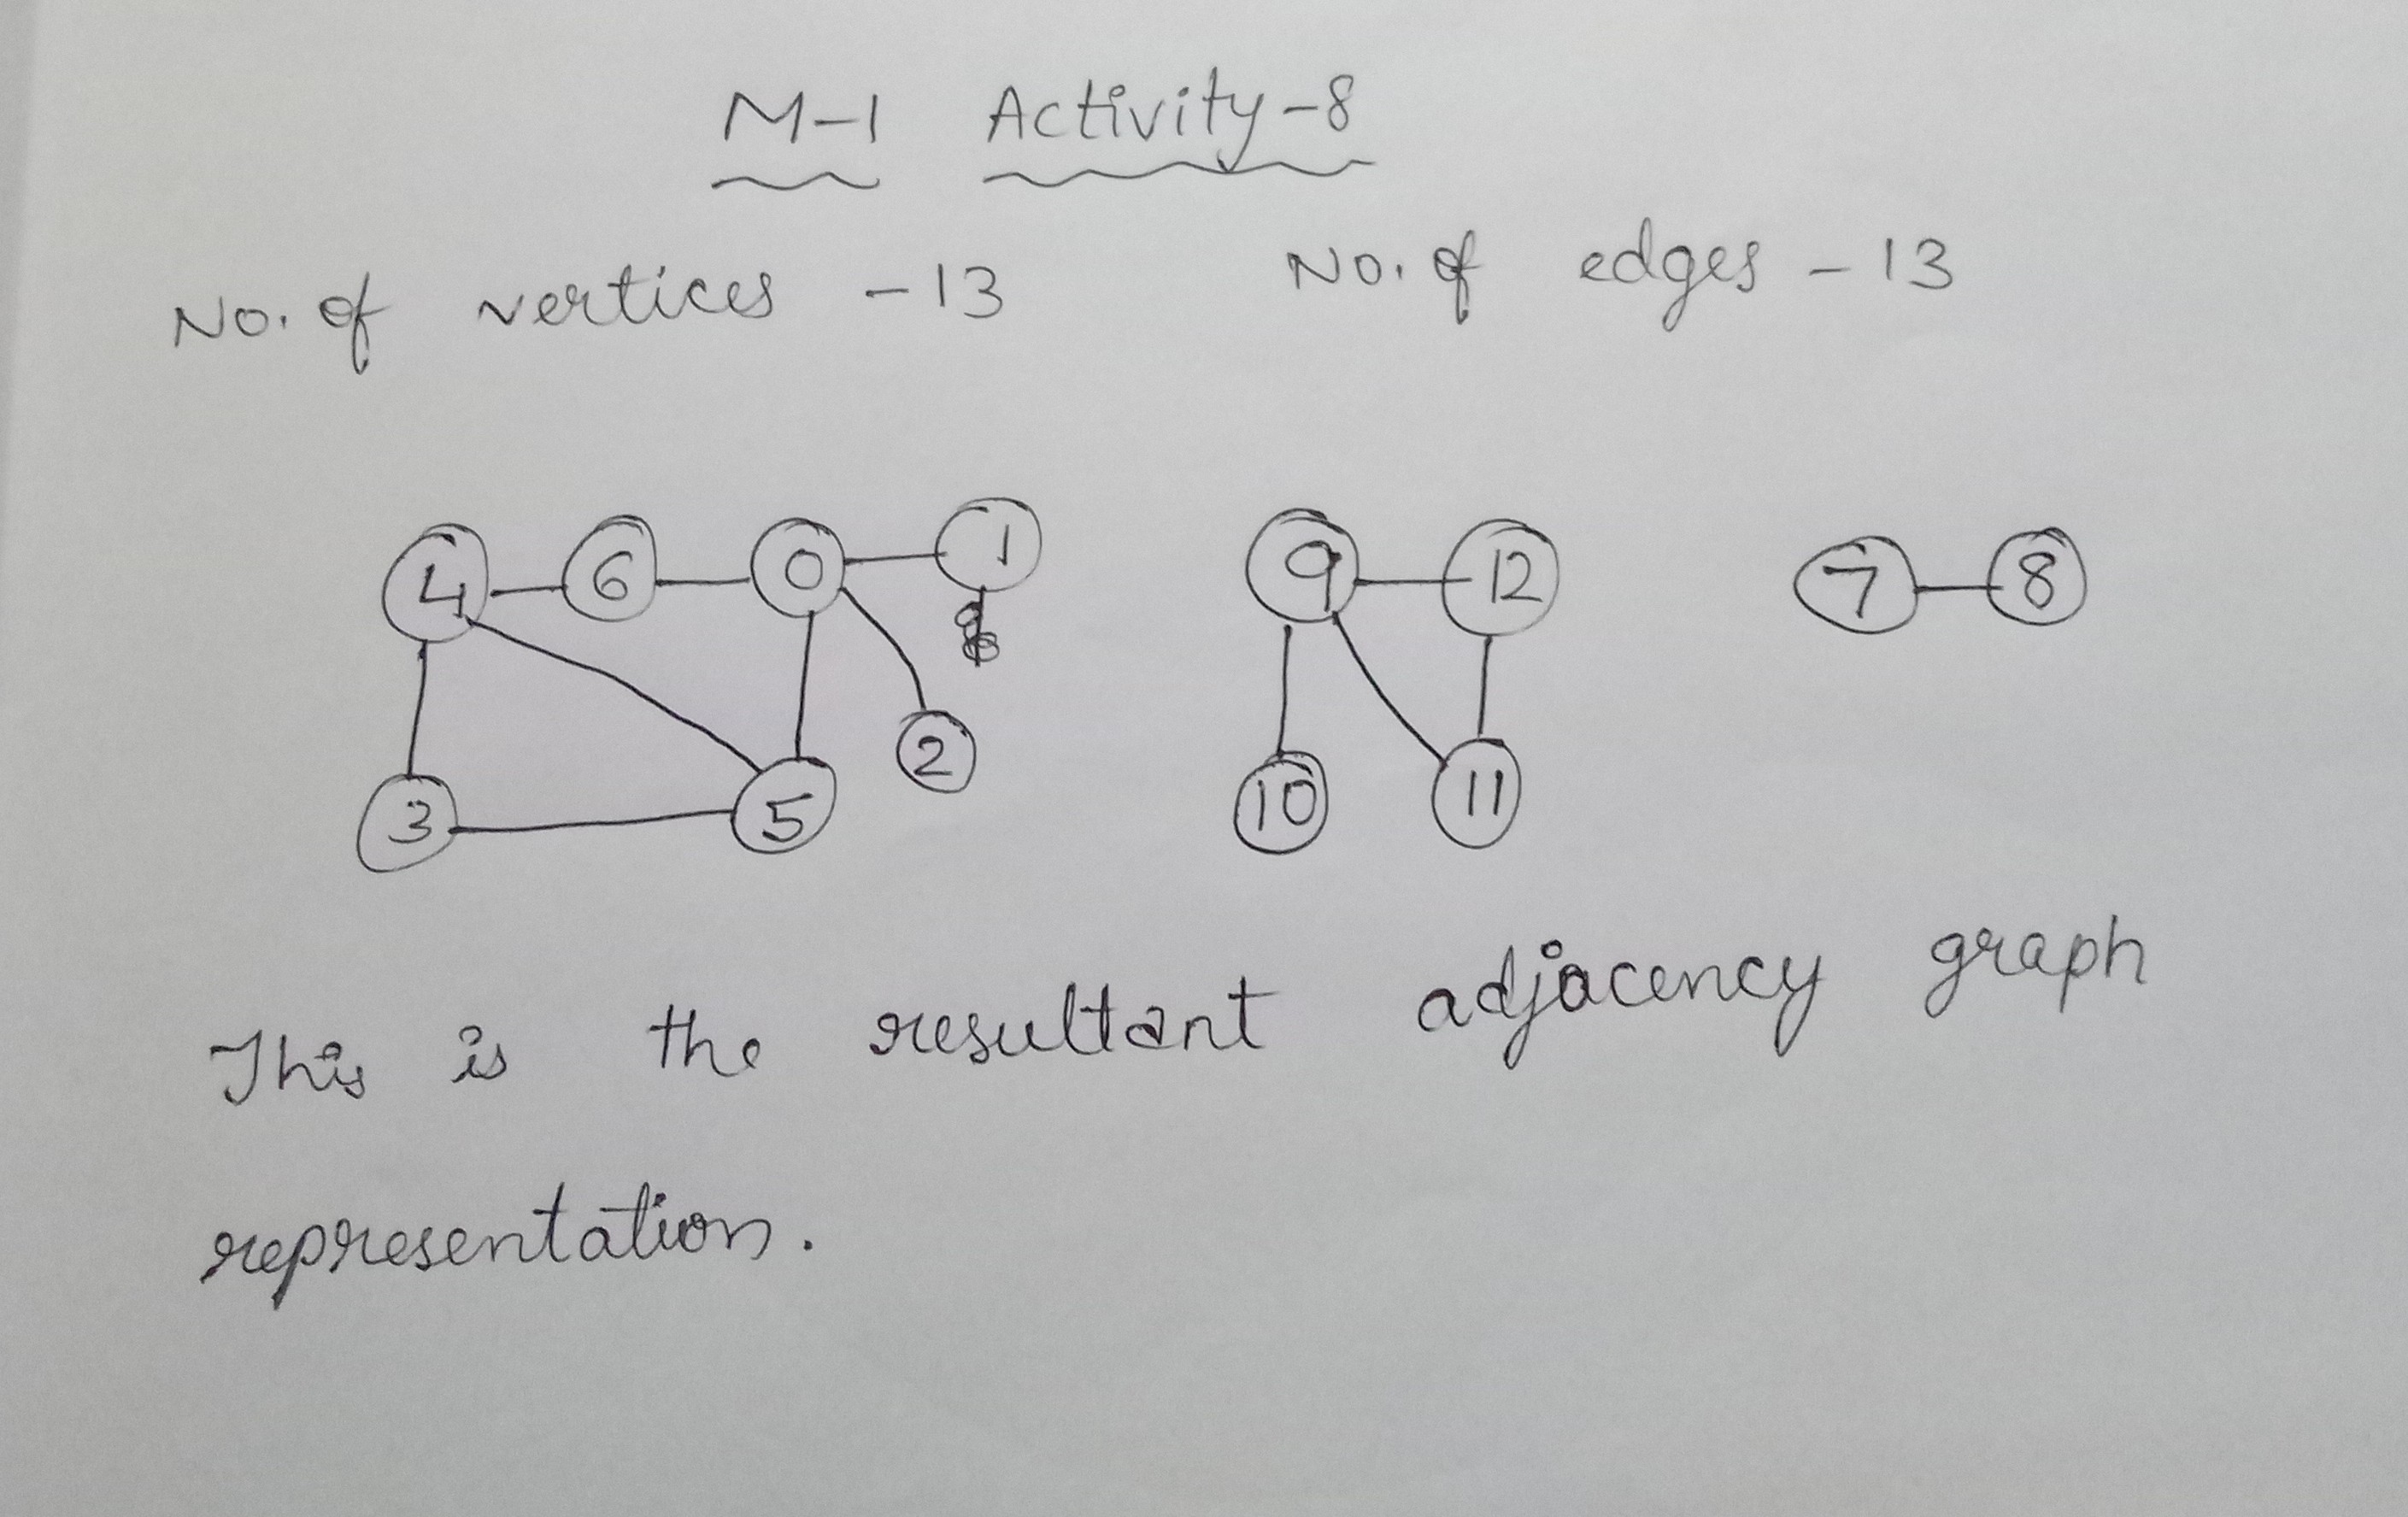 M-1 Activity-8
No. of vertices - 13 No. of edges - 13
4 6 0 1 9 12 7 8
2
3 5 10 11
This is the resultant adjacency graph
representation.